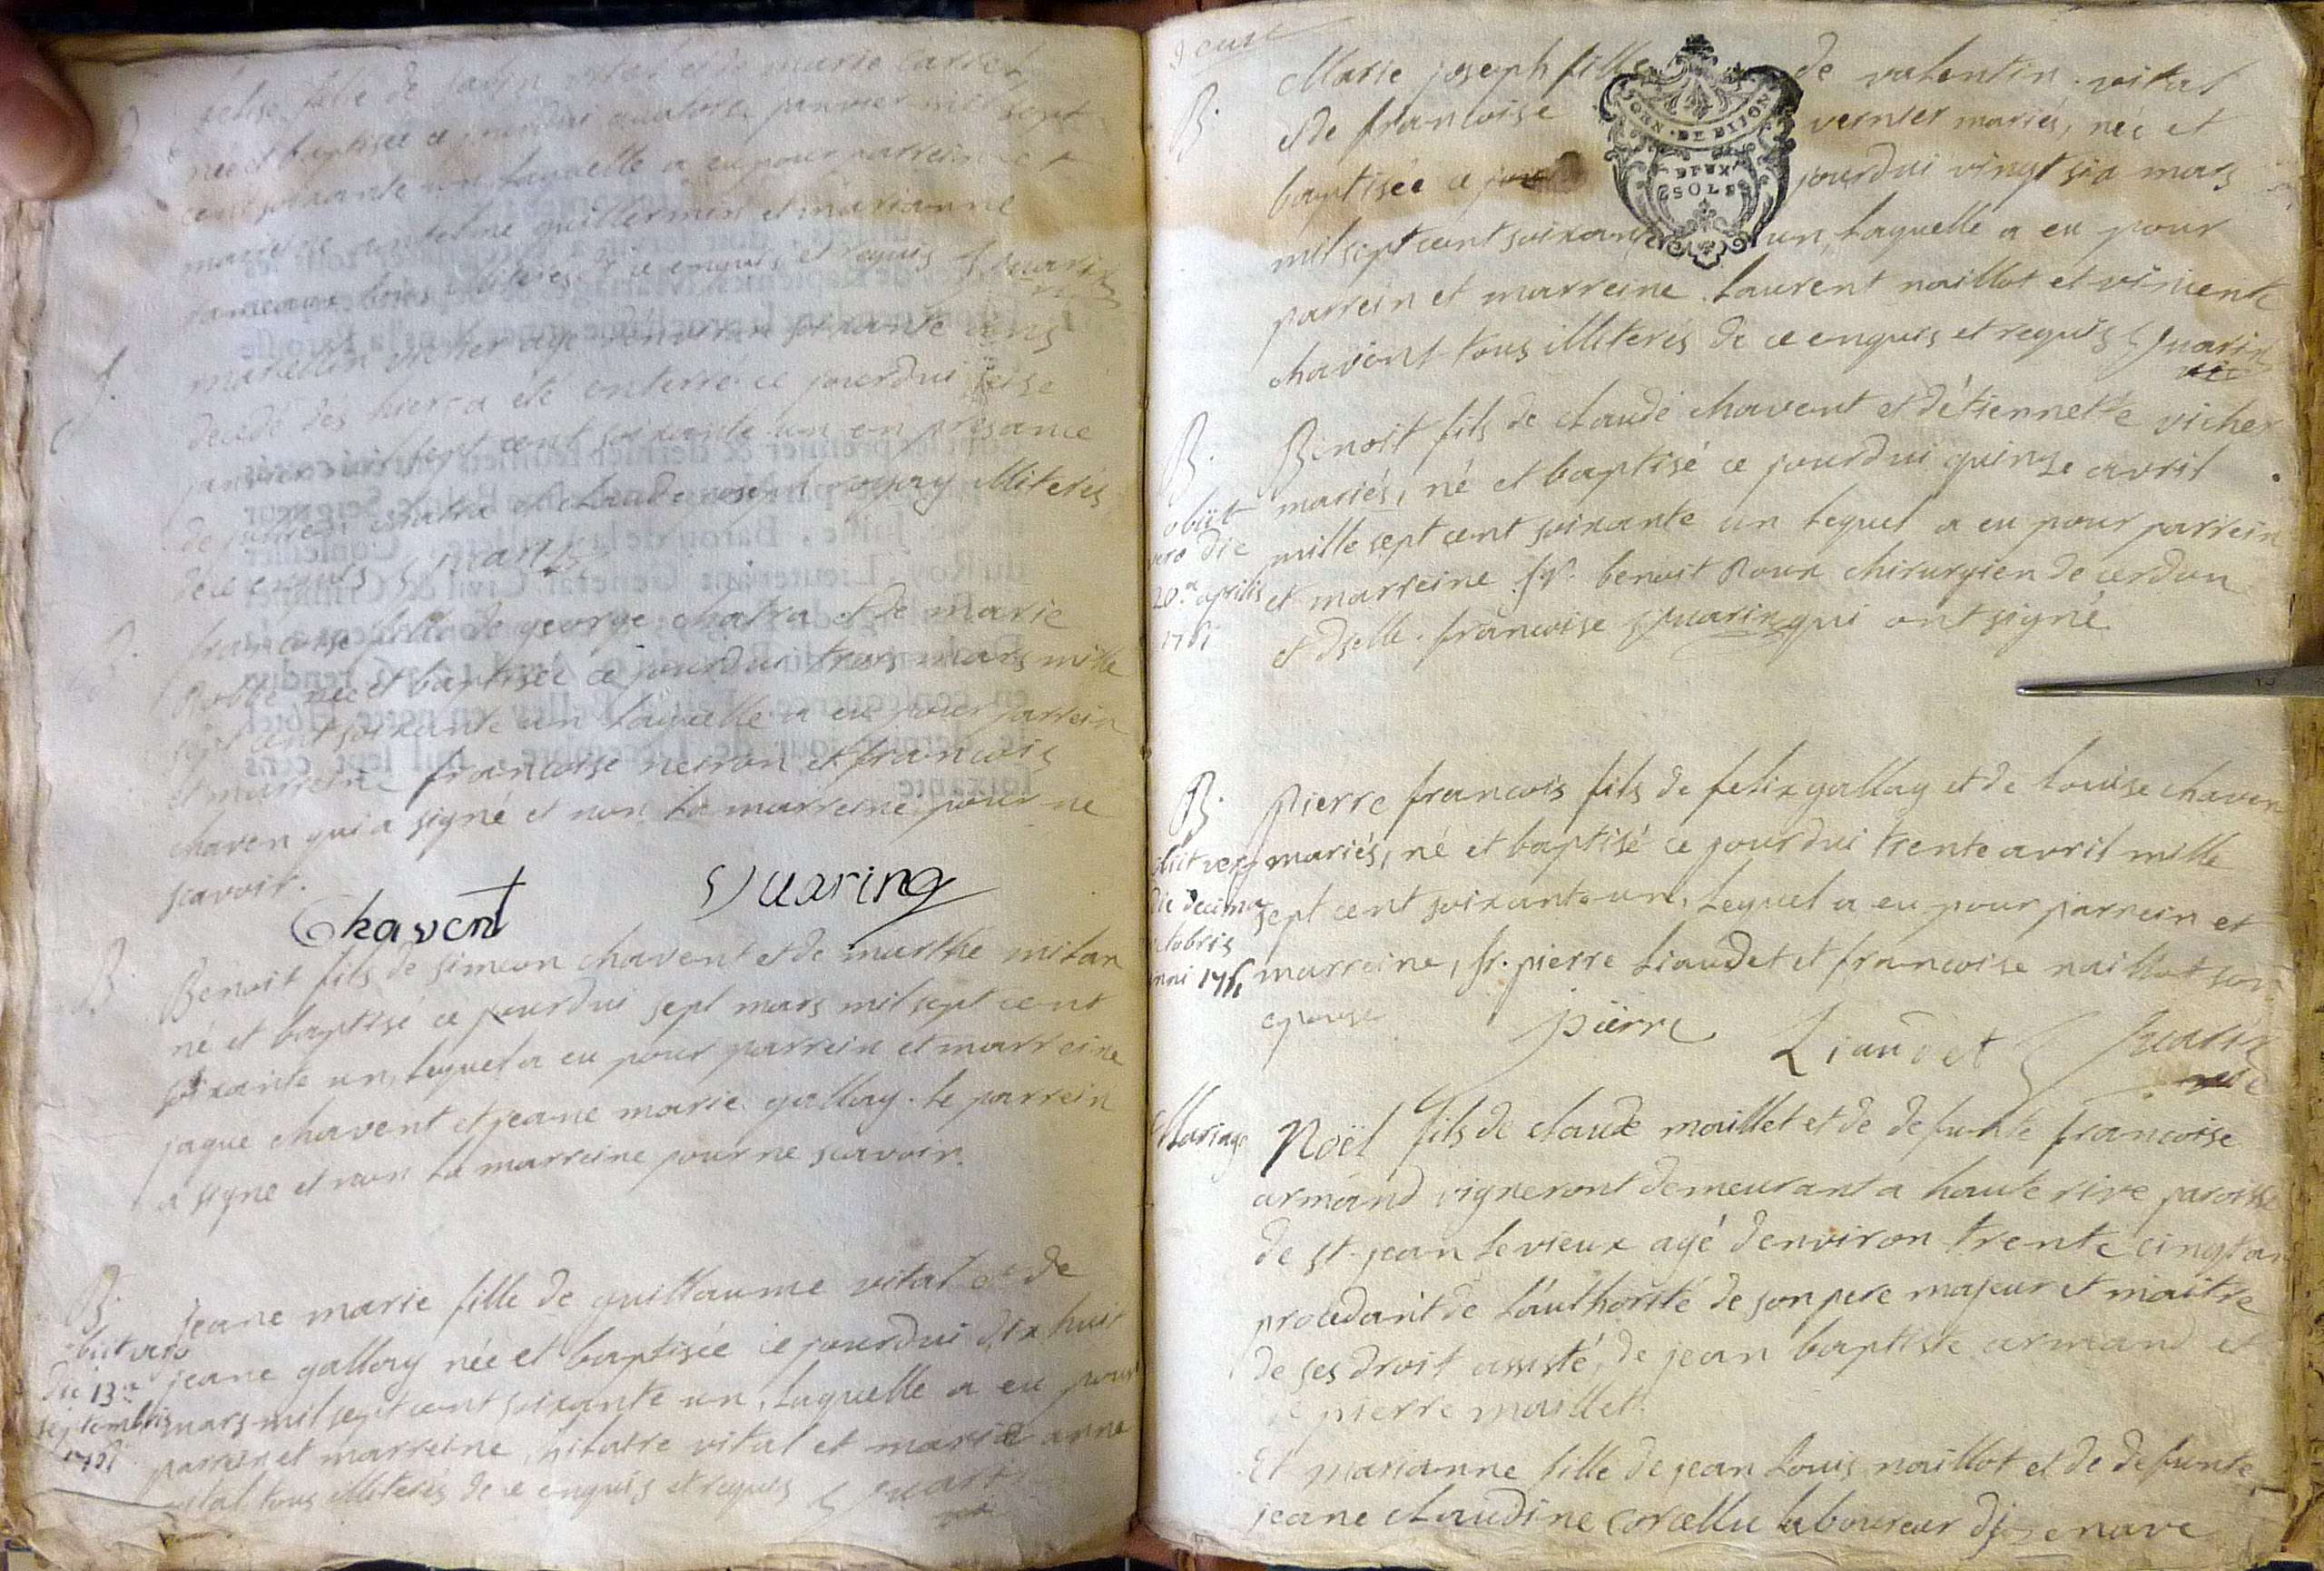 fille de et de marie carrel
née et baptisée ce jourdui quatorze janvier mil sept
cent soixante un laquelle a eu pour parrein et
marreine antoine guillermin et marianne
tous illiterés de ce enquis et requis
S.
agé denviron soixante ans
decedé des hier a eté enterré ce jourdui seise
janvier mil sept cent soixante un en presance
de pierre et claude joseph illiterés
de ce enquis
B.
francoise fille de george chatra et de marie
née et baptisée ce jourdui trois mars mille
sept cent soixante un laquelle a eu pour parrein
et marreine francoise neiron et francois
chaven qui a signé et non la marreine pour ne
scavoir.
Chavent Vuarin
B
Benoit fils de simeon chavent et de marthe milan
né et baptisé ce jourdui sept mars mil sept cent
soixante un, lequel a eu pour parrein et marreine
jaque chavent et jeane marie gallay. le parrein
a signe et non la marreine pour ne scavoir.
B.
obiit vero
die 13a
septembris
1761
jeane marie fille de guillaume vital et de
jeane gallay née et baptisée ce jourdui dix huit
mars mil sept cent soixante un, laquelle a eu pour
parrein et marreine, hilaire vital et marie anne
vital tous illiterés de ce enquis et requis Vuarin
B.
Marie joseph fille de valentin vital
et de francoise vernier mariés, née et
baptisée ce jourdui vingt six mars
mil sept cent soixante un, laquelle a eu pour
parrein et marreine Laurent naillot et
chavent tous illiterés de ce enquis et requis Vuarin
GEN. DE DIJON
DEUX
SOLS
B.
obiit
vero die
20a aprilis
1761
Benoit fils de claude chavent et d'étiennette vicher
mariés, né et baptisé ce jourdui quinze avril
mille sept cent soixante un lequel a eu pour parrein
et marreine sr. benoit Roux chirurgien de cerdon
et dselle. francoise Vuarin qui ont signé
B.
obiit vero
die decima
octobris
anni 1761
Pierre francois fils de felix gallay et de Louise chaven
mariés, né et baptisé ce jourdui trente avril mille
sept cent soixante un, lequel a eu pour parrein et
marreine, sr. pierre Liaudet et francoise naillot son
epouse
pierre Liaudet Vuarin
Mariage
Noël fils de claude maillet et de defunte francoise
armand vigneront demeurant a haute rive paroisse
de st. jean le vieux agé denviron trente cinq an
procedant de l'authorité de son pere majeur et maitre
de ses droit assisté, de jean baptiste armand et
de pierre maillet.
Et marianne fille de jean Louis naillot et de defunte
jeane claudine laboureur